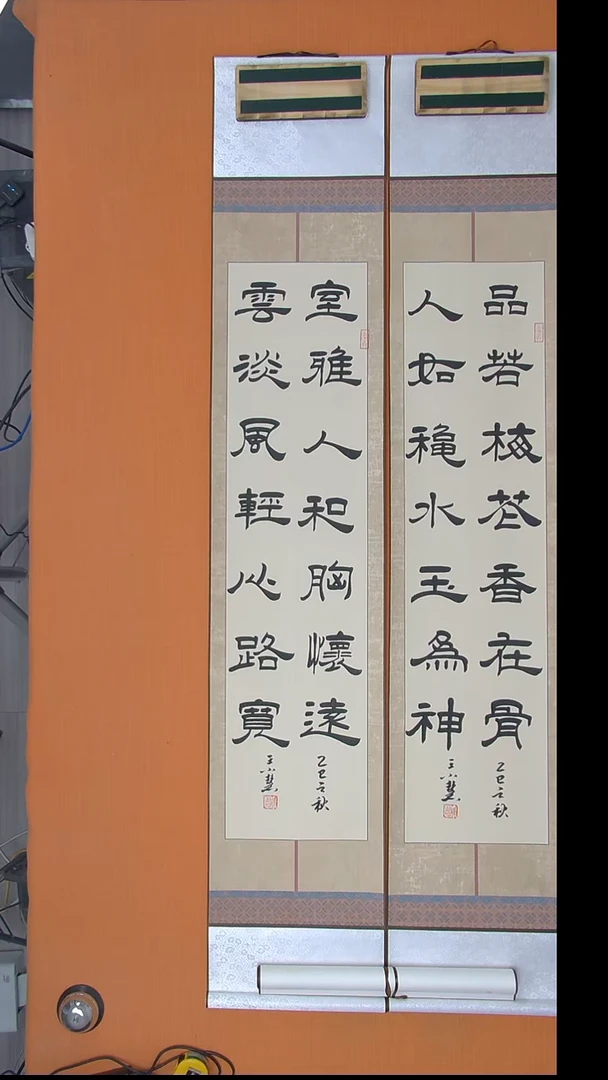 品若梅花香在骨
乙巳之秋
人如穐水玉為神
王小慧
室雅人和胸懷遠
乙巳之秋
雲淡風輕心路寬
王小慧